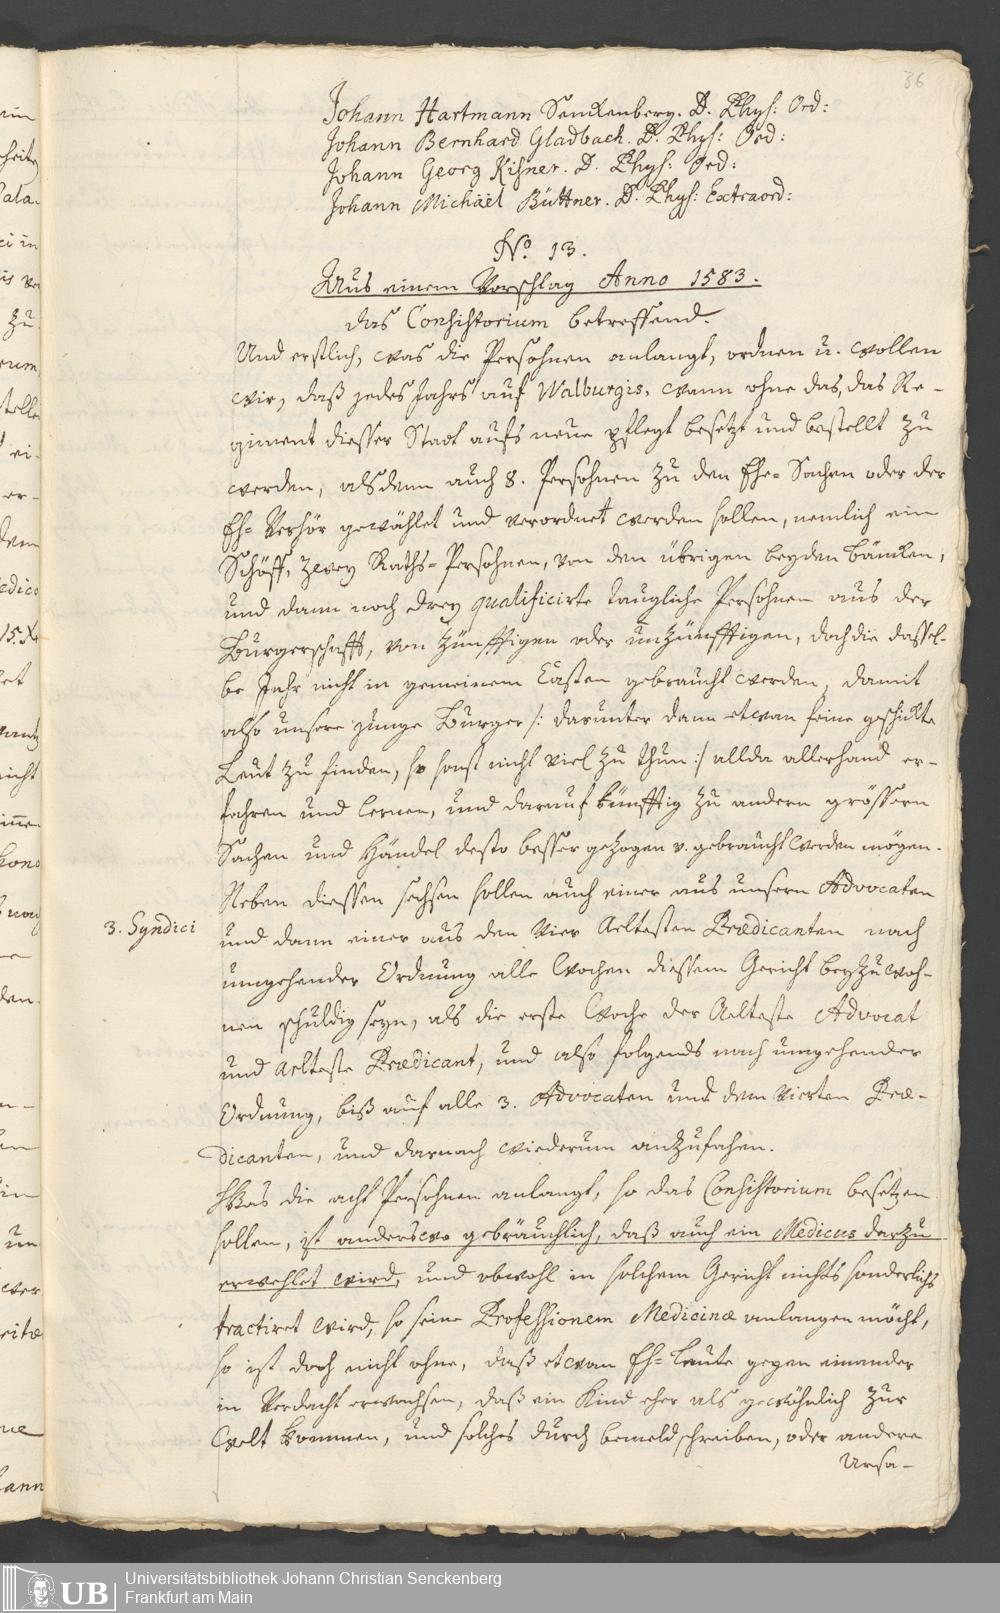 36
Johann Hartmann Senckenberg. D. Phys: Ord:
Johann Bernhard Gladbach. D. Phys: Ord:
Johann Georg Kisner. D. Phys: Ord:
Johann Michäel Büttner. D. Phys: Extraord:
No. 13.
Aus einem Vorschlag Anno 1583.
das Consistorium betreffend.
Und erstlich, was die Persohnen anlangt, ordnen u. wollen
wir, daß jedes Jahrs auf Walburgis, wann ohne das, das Re-
giment dießer Stadt aufs neue pflegt besetzt und bestellt zu
werden, alsdenn auch 8. Persohnen zu den Ehe-Sachen oder der
Eh-Verhör gewählet und verordnet werden sollen, nemlich ein
Schöff, zwey Raths-Persohnen, von den übrigen beyden Bäncken,
und dann noch drey qualificirte taugliche Persohnen aus der
Burgerschafft, von Zünfftigen oder unzünfftigen, doch die dassel-
be Jahr nicht in gemeinem Casten gebraucht werden, damit
also unsere junge Burger /: darunter dann etwan feine geschickte
Leut zu finden, so sonst nicht viel zu thun :/ allda allerhand er-
fahren und lernen, und darauf künfftig zu andern grössern
Sachen und Händel desto besser gezogen u. gebraucht werden mögen.
Neben diessen sechsen sollen auch einer aus unsern Advocaten
3. Syndici
und dann einer aus den vier Aeltesten Prædicanten nach
umgehender Ordnung alle Wochen diessem Gericht beyzuwoh-
nen schuldig seyn, als die erste Woche der Aelteste Advocat
und Aelteste Prædicant, und also folgends nach umgehender
Ordnung, biß auf alle 3. Advocaten und dem vierten Præ-
dicanten, und darnach wiederum anzufahen.
Was die acht Persohnen anlangt, so das Consistorium besetzen
sollen, ist anderswo gebräuchlich, daß auch ein Medicus darzu
erwehlet wird, und obwohl in solchem Gericht nichts sonderlichs
tractiret wird, so seine Professionem Medicinæ anlangen möcht,
so ist doch nicht ohne, daß etwan Eh-Leute gegen einander
in Verdacht erwachsen, daß ein Kind eher als gewöhnlich zur
Welt kommen, und solches durch beweldschreiben, oder andere
Ursa-
Universitätsbibliothek Johann Christian Senckenberg
Frankfurt am Main
UB